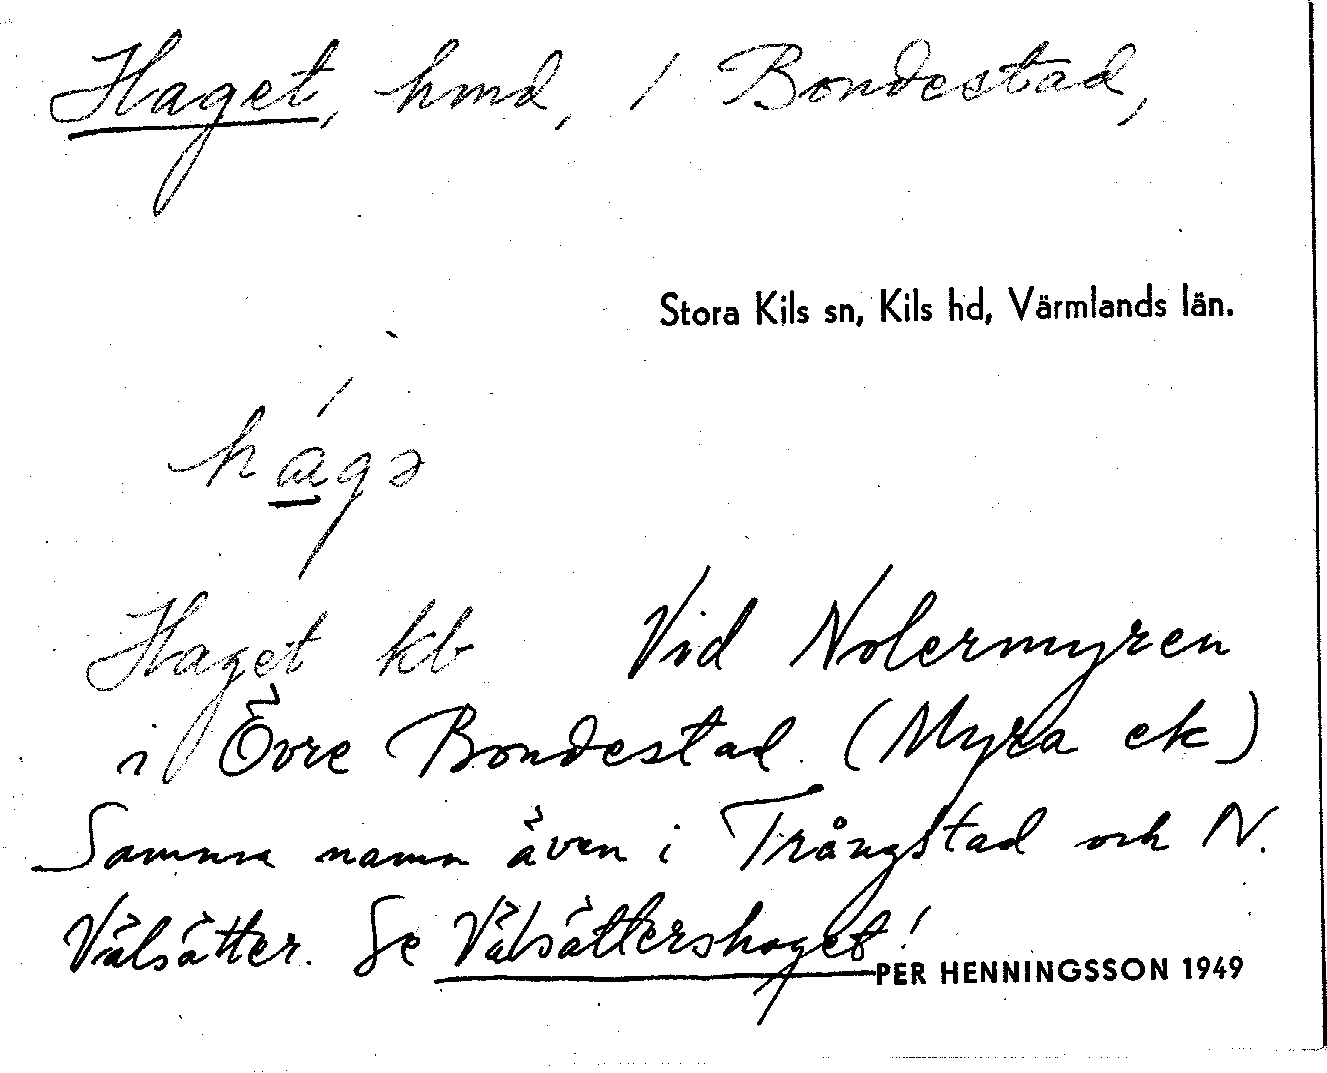 Haget, hmd, / Bondestad,
Stora Kils sn, Kils hd, Värmlands län.
há̱gə
Haget kb Vid Nolermyren
i Övre Bondestad (Myra ek)
Samma namn även i Trångstad och N.
Välsätter. Se Välsättershaget!
PER HENNINGSSON 1949